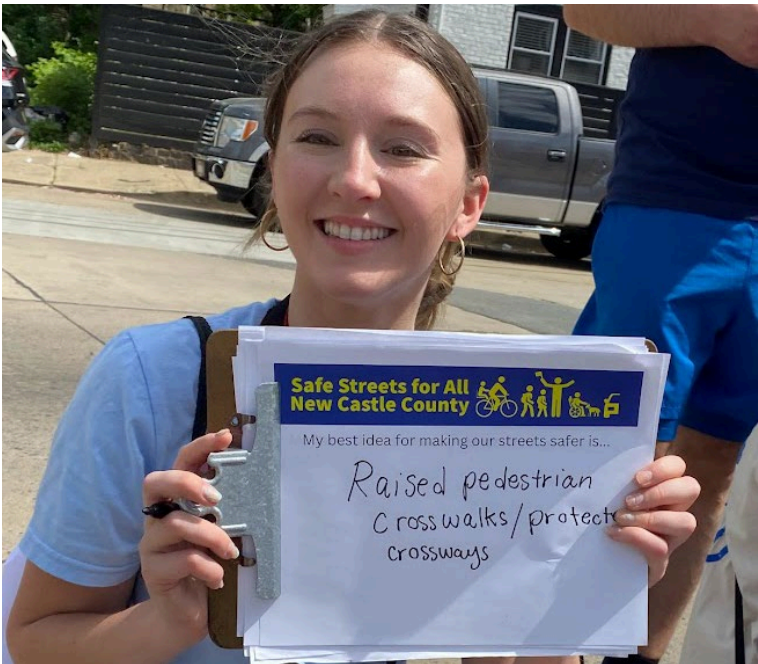 Safe Streets for All
New Castle County
My best idea for making our streets safer is...
Raised pedestrian
crosswalks/protecte
crossways